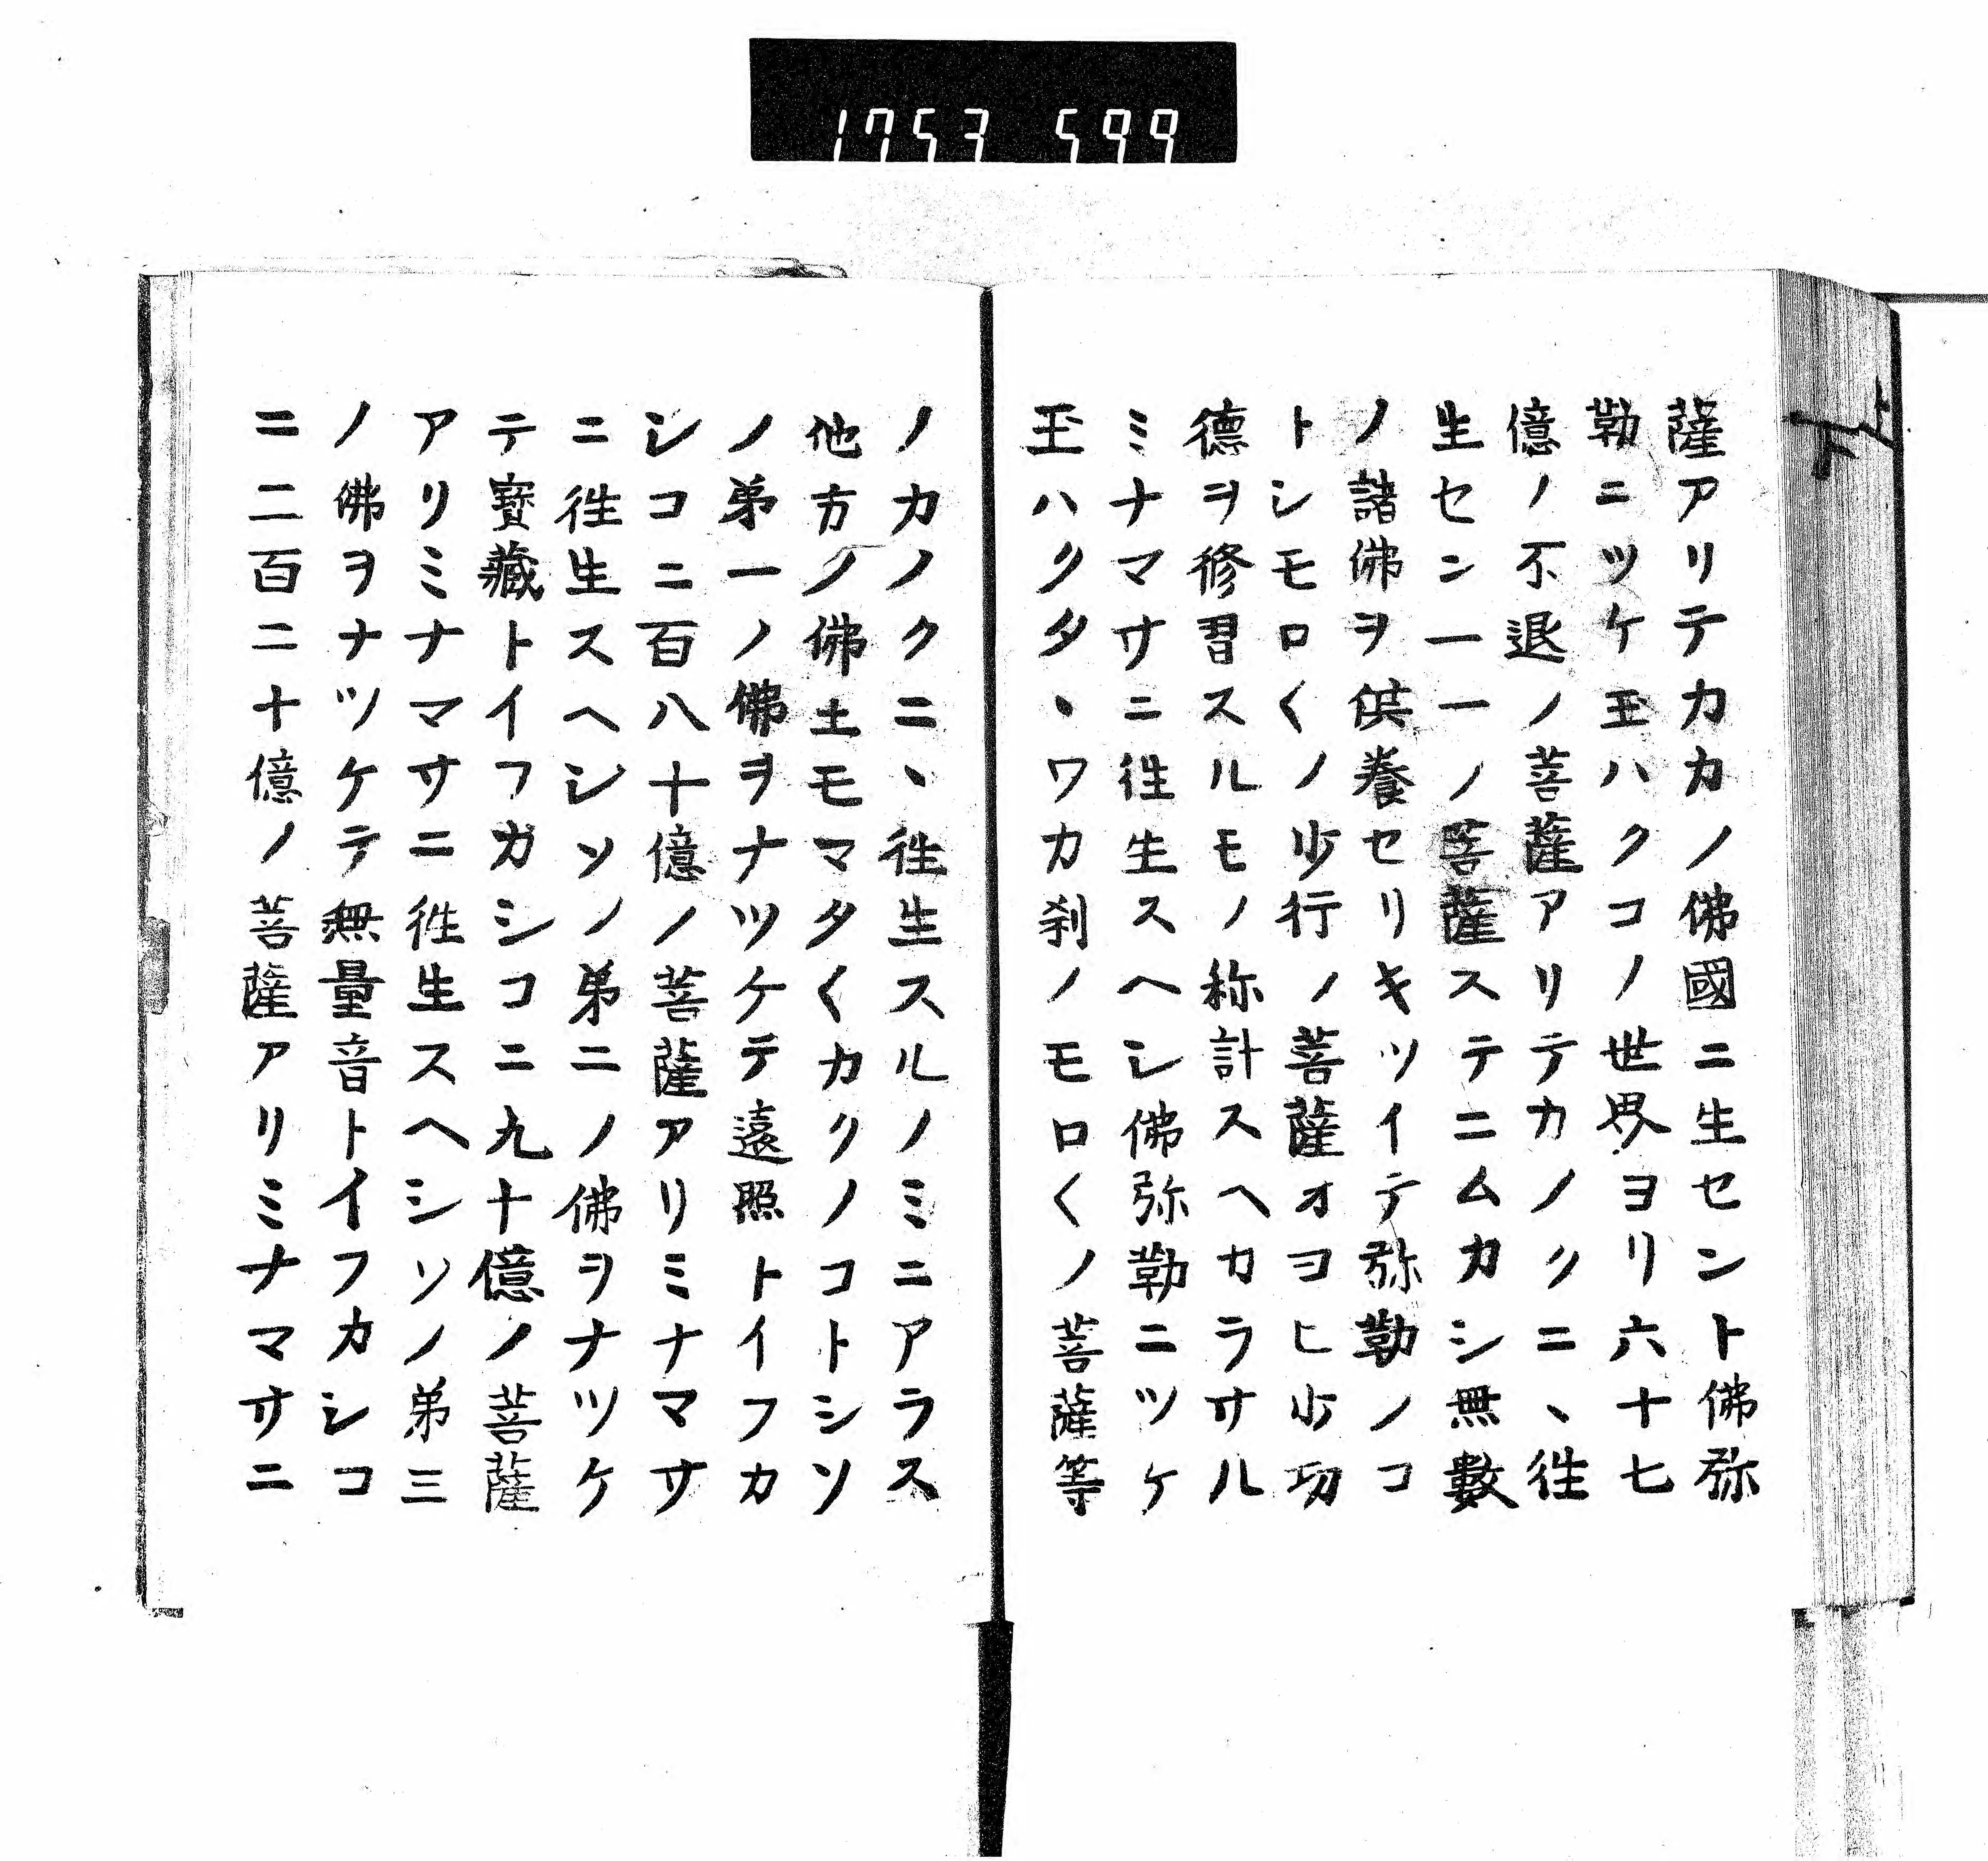 1753 599
薩アリテカカノ佛國ニ生セント佛弥
勒ニツケ玉ハクコノ世界ヨリ六十七
億ノ不退ノ菩薩アリテカノクニヽ徃
生セン一一ノ菩薩ステニムカシ無數
ノ諸佛ヲ供養セリキツイテ弥勒ノコ
トシモロ〱ノ少行ノ菩薩オヨヒ少功
德ヲ修習スルモノ称計スヘカラサル
ミナマサニ徃生スヘシ佛弥勒ニツケ
玉ハクタヽワカ刹ノモロ〱ノ菩薩等
ノカノクニヽ徃生スルノミニアラス
他方ノ佛土モマタ〱カクノコトシソ
ノ弟一ノ佛ヲナツケテ遠照トイフカ
シコニ百八十億ノ菩薩アリミナマサ
ニ徃生スヘシソノ弟二ノ佛ヲナツケ
テ寳藏トイフカシコニ九十億ノ菩薩
アリミナマサニ徃生スヘシソノ弟三
ノ佛ヲナツケテ無量音トイフカシコ
ニ二百二十億ノ菩薩アリミナマサニ